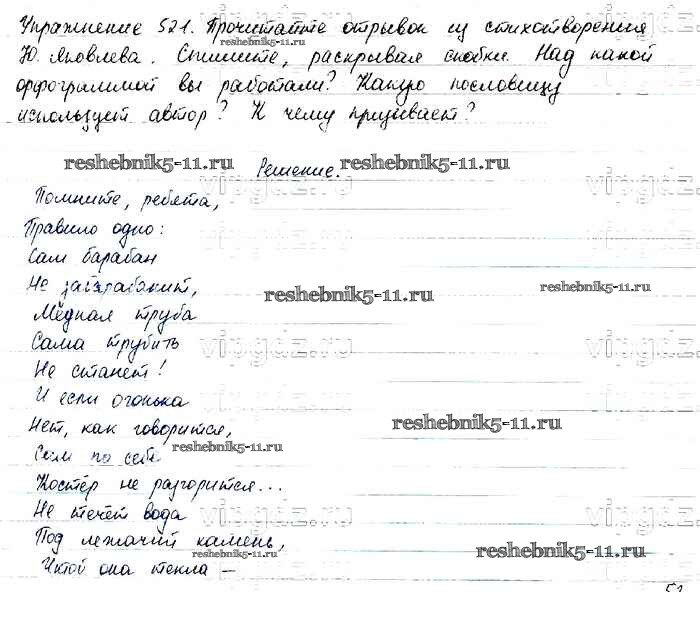 Упражнение 521. Прочитайте отрывок из стихотворения
Ю. Яковлева. Спишите, раскрывая скобки. Над какой
орфограммой вы работали? Какую пословицу
использует автор? К чему призывает?
reshebnik5-11.ru Решение. reshebnik5-11.ru
Помните, ребята, vipgdz.ru
Правило одно: vipgdz.ru
Сам барабан
Не забарабанит, reshebnik5-11.ru reshebnik5-11.ru
Медная труба
Сама трубить vipgdz.ru vipgdz.ru
Не станет!
И если огонька
Нет, как говорится, reshebnik5-11.ru
Сам по себе reshebnik5-11.ru
Костёр не разгорится...
Не течёт вода vipgdz.ru vipgdz.ru
Под лежачий камень,
reshebnik5-11.ru reshebnik5-11.ru
Чтоб она текла –